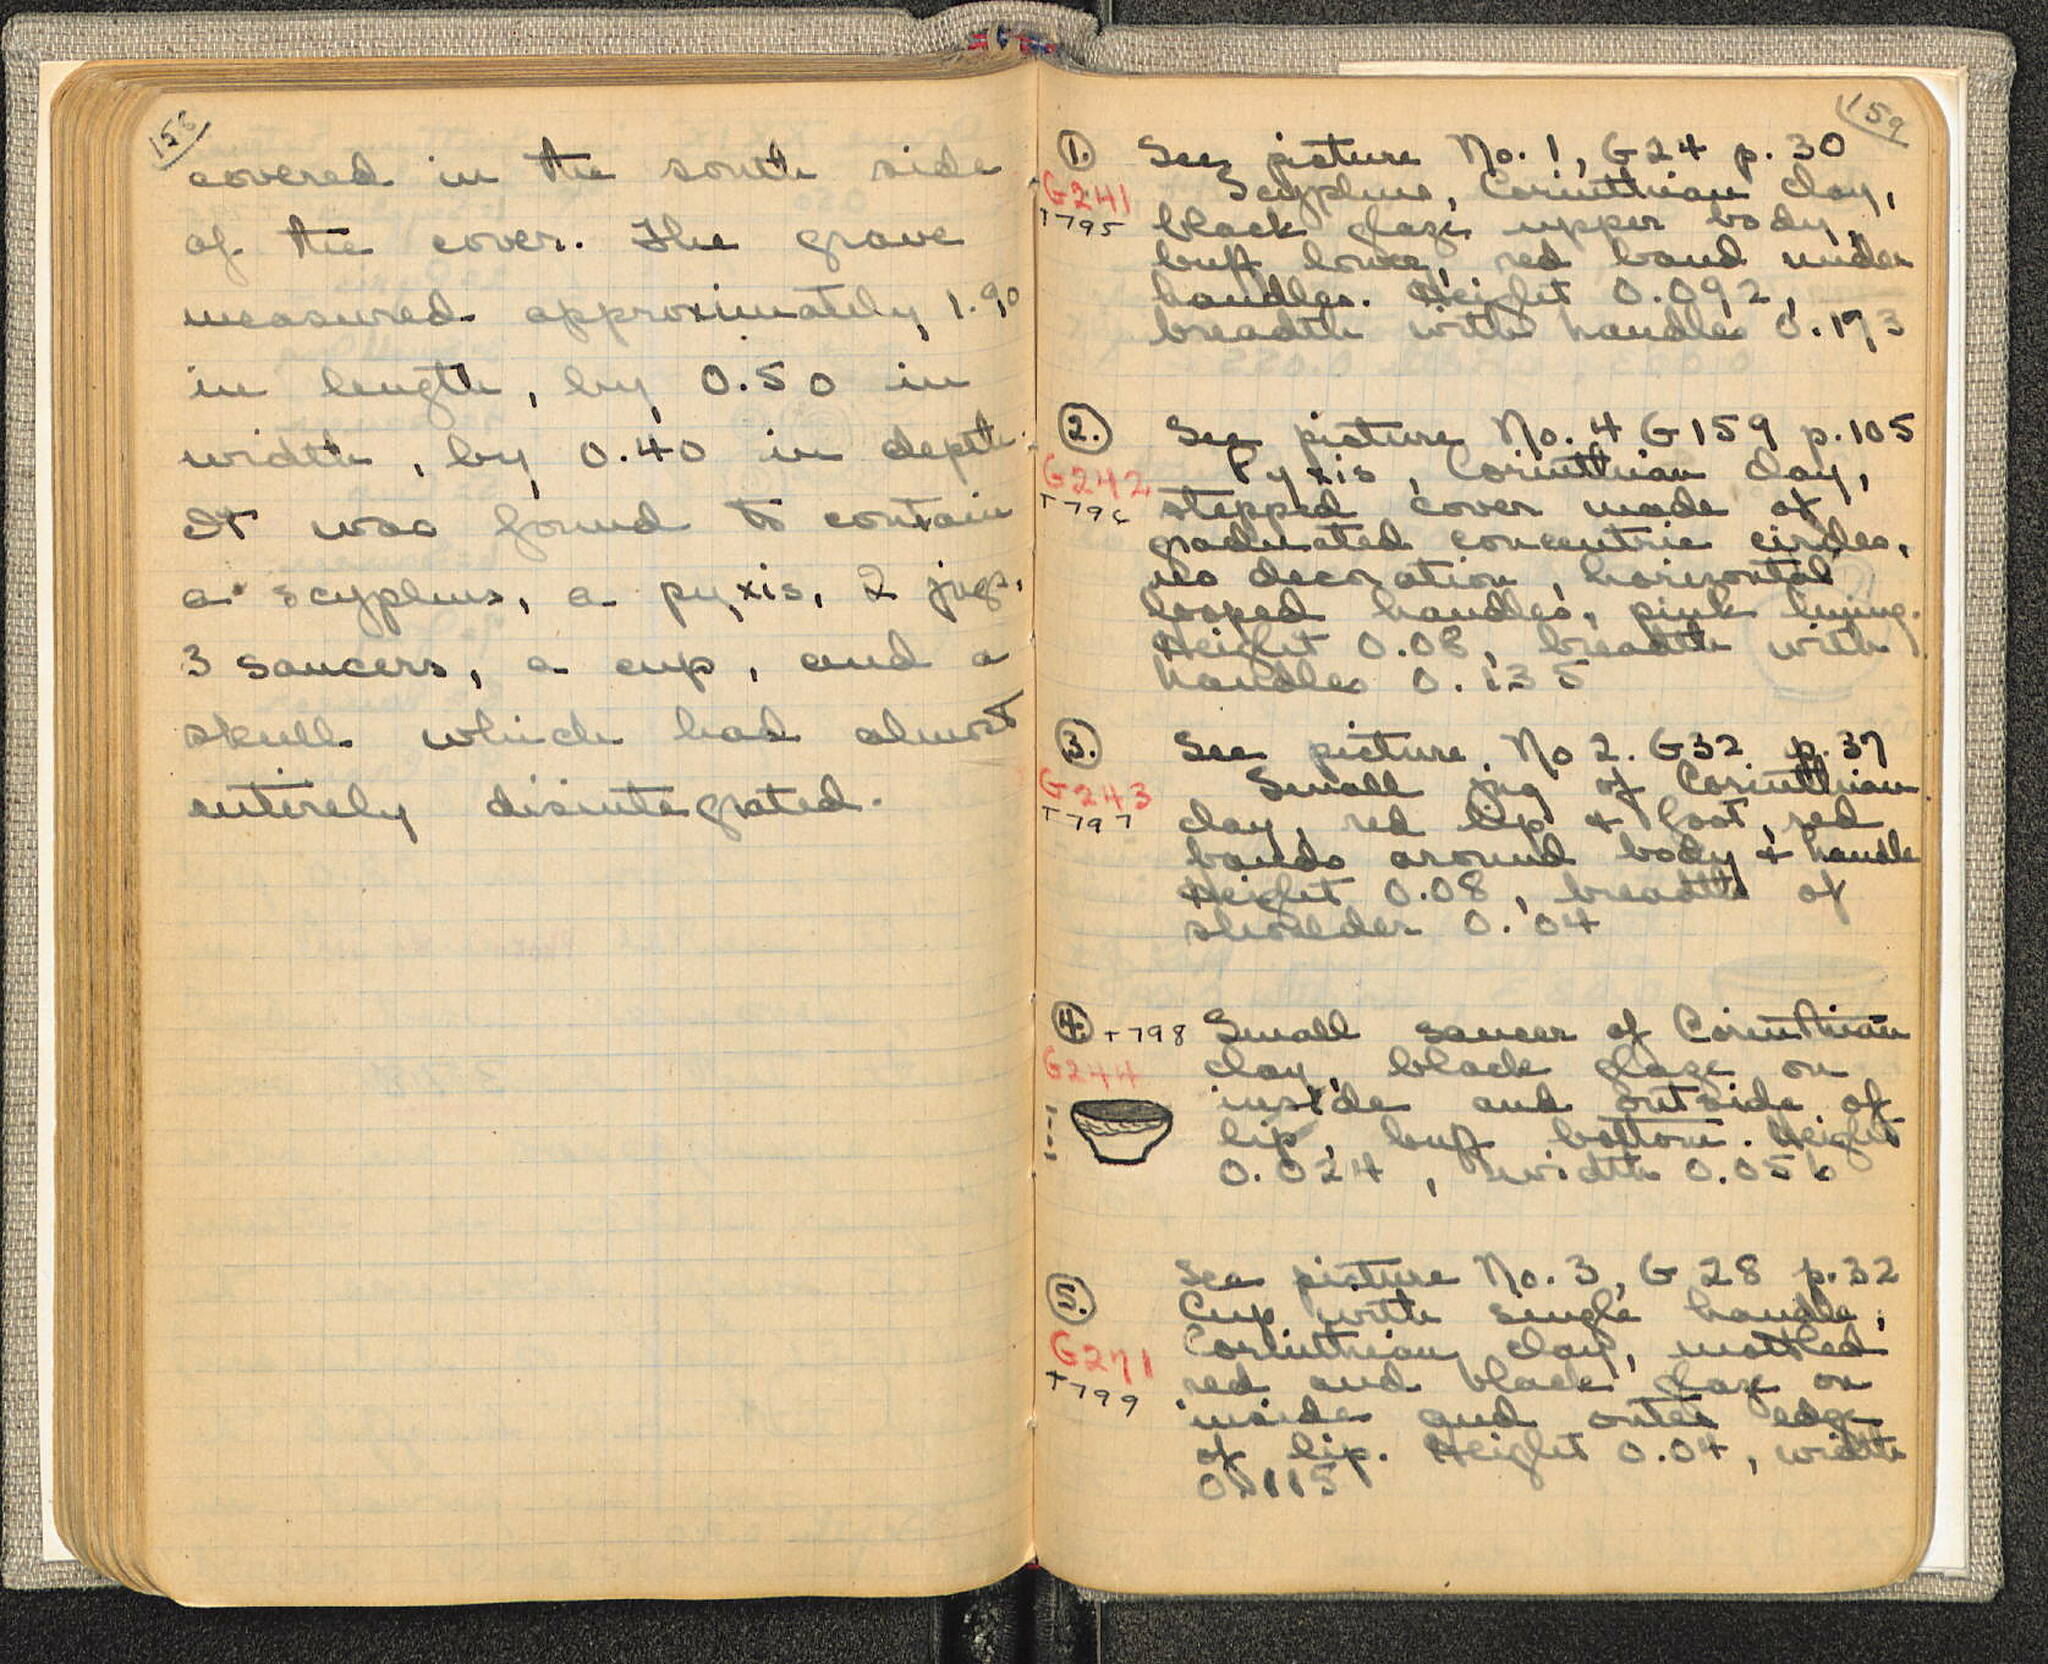 158
covered in the south side
of the cover. The grave
measured approximately 1.90
in length, by 0.50 in
width, by 0.40 in depth.
It was found to contain
a scyphus, a pyxis, 2 jugs,
3 saucers, a cup, and a
skull which had almost
entirely disintegrated.
159
1. See picture No. 1, G24 p. 30
G241 Scyphus, Corinthian clay,
T795 black glaze upper body,
buff lower, red band under
handles. Height 0.092,
breadth with handles 0.193
2. See picture No. 4 G159 p. 105
G242 Pyxis, Corinthian clay,
T796 stepped cover made of
graduated concentric circles,
no decoration, horizontal
looped handles, pink lining.
Height 0.08, breadth with
handles 0.135
3. See picture No 2. G32 p. 37
G243 Small jug of Corinthian
T797 clay, red lip & foot, red
bands around body & handle
Height 0.08, breadth of
shoulder 0.04
4. T798 Small saucer of Corinthian
G244 clay, black glaze on
inside and outside of
lip, buff bottom. Height
0.024, width 0.056
5. See picture No. 3, G28 p. 32
Cup with single handle,
G271 Corinthian clay, mottled
T799 red and black glaze on
inside and outer edge
of lip. Height 0.04, width
0.115